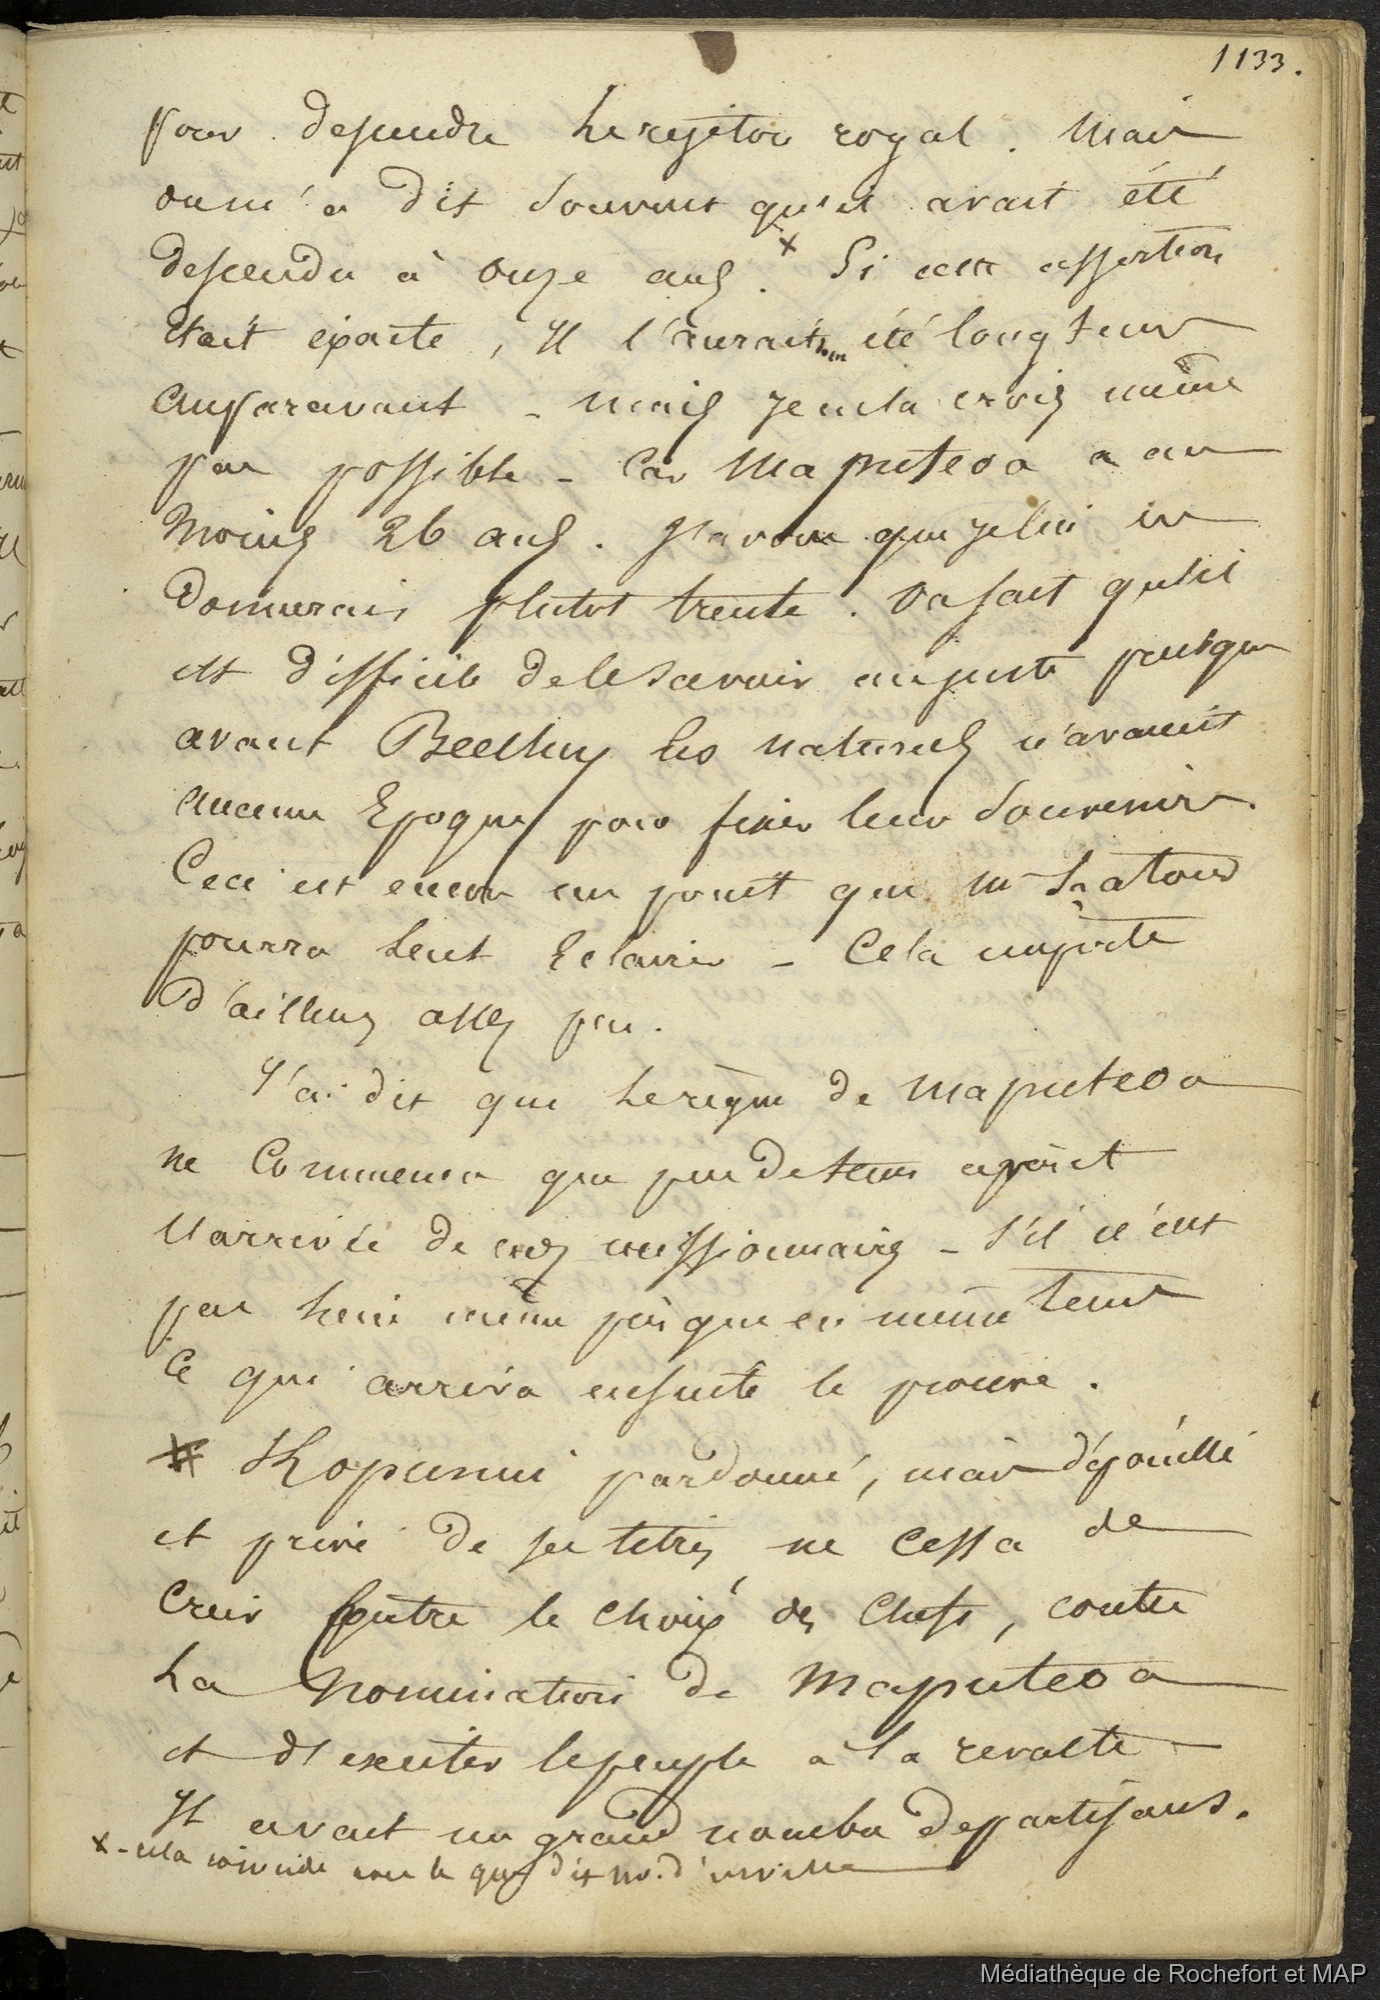 1133.
pour descendre le rejeton royal. Mais
on m'a dit souvent qu'il avait été
x
descendu à onze ans. Si cette assertion
était éxacte, Il l'aurait été longtems
auparavant - mais je ne la crois même
pas possible - Car Maputeoa a au
Moins 26 ans. J'avoue que je lui en
donnerais plutot trente. Il est
est difficile de le savoir au juste puisque
avant Beechey les naturels n'avaient
aucune Epoque pour fixer leur souvenirs.
Ceci est encore un point que Mr Latour
pourra seul Eclairer - Cela importe
d'ailleurs assez peu.
J'ai dit que le règne de Maputeoa
ne Commença que peu de tems après et
l'arrivée de nos missionnaires - s'il n'eut
pas lieu même presque en même tems
Ce qui arriva ensuite le prouve.
Mopunui pardonné, mais dépouillé
et privé de ses titres, ne cessa de
Crier contre le choix des Chefs, contre
La Nomination de Maputeoa
et d'exciter le peuple à la revolte -
Il avait un grand nombre de partisans.
x - cela coincide avec ce que dit Mr. d'urville
Médiathèque de Rochefort et MAP